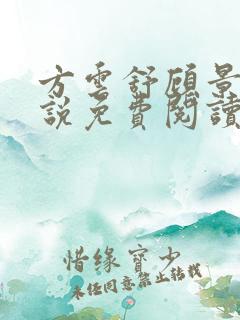 方雲舒顧景
說免費閱讀
惜缘寳少
未经同意禁止转载